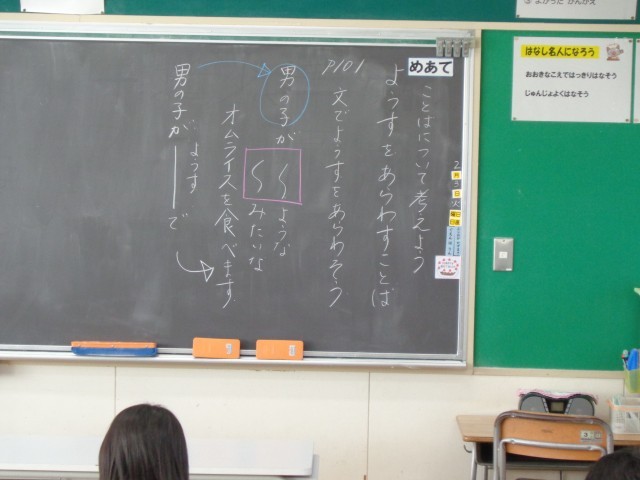 ことばについて考えよう
ようすをあらわすことば
めあて
P101
文でようすをあらわそう
男の子が
ような
みたいな
オムライスを食べます
男の子が
ようす
で
はなし名人になろう
おおきなこえではっきりはなそう
じゅんじょよくはなそう
2
月
日